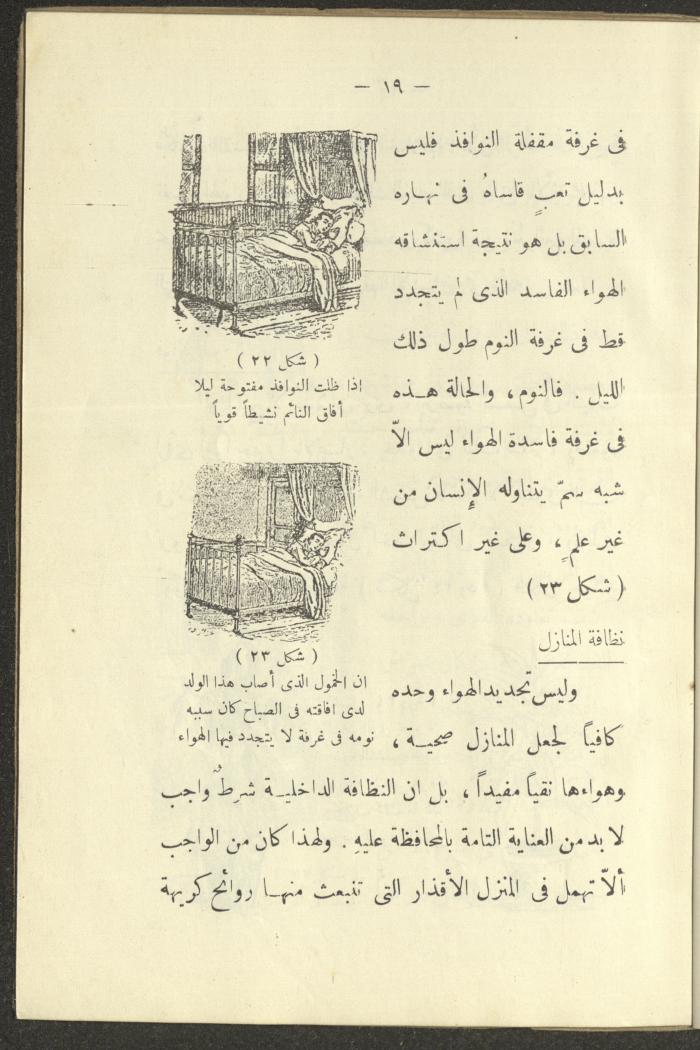 — ١٩ —
فى غرفة مقفلة النوافذ فليس
بدليل تعبٍ قاساهُ فى نهاره
السابق بل هو نتيجة استنشاقه
الهواء الفاسد الذى لم يتجدد
قط فى غرفة النوم طول ذلك
الليل . فالنوم ، والحالة هـذه
فى غرفة فاسدة الهواء ليس الاّ
شبه سمّ يتناوله الإنسان من
غير علمٍ ، وعلى غير اكتراث
( شكل ٢٣ )
( شكل ٢٢ )
اذا ظلت النوافذ مفتوحة ليلا
أفاق النائم نشيطاً قوياً
( شكل ٢٣ )
ان الخمول الذى أصاب هذا الولد
لدى افاقته فى الصباح كان سببه
نومه فى غرفة لا يتجدد فيها الهواء
نظافة المنازل
وليس تجديد الهواء وحده
كافياً لجعل المنازل صحيـة ،
وهواءها نقياً مفيداً ، بل ان النظافة الداخليـة شرطٌ واجب
لا بد من العناية التامة بالمحافظة عليهِ . ولهذا كان من الواجب
ألاّ تهمل فى المنزل الأقذار التى تنبعث منهـا روائح كريهة